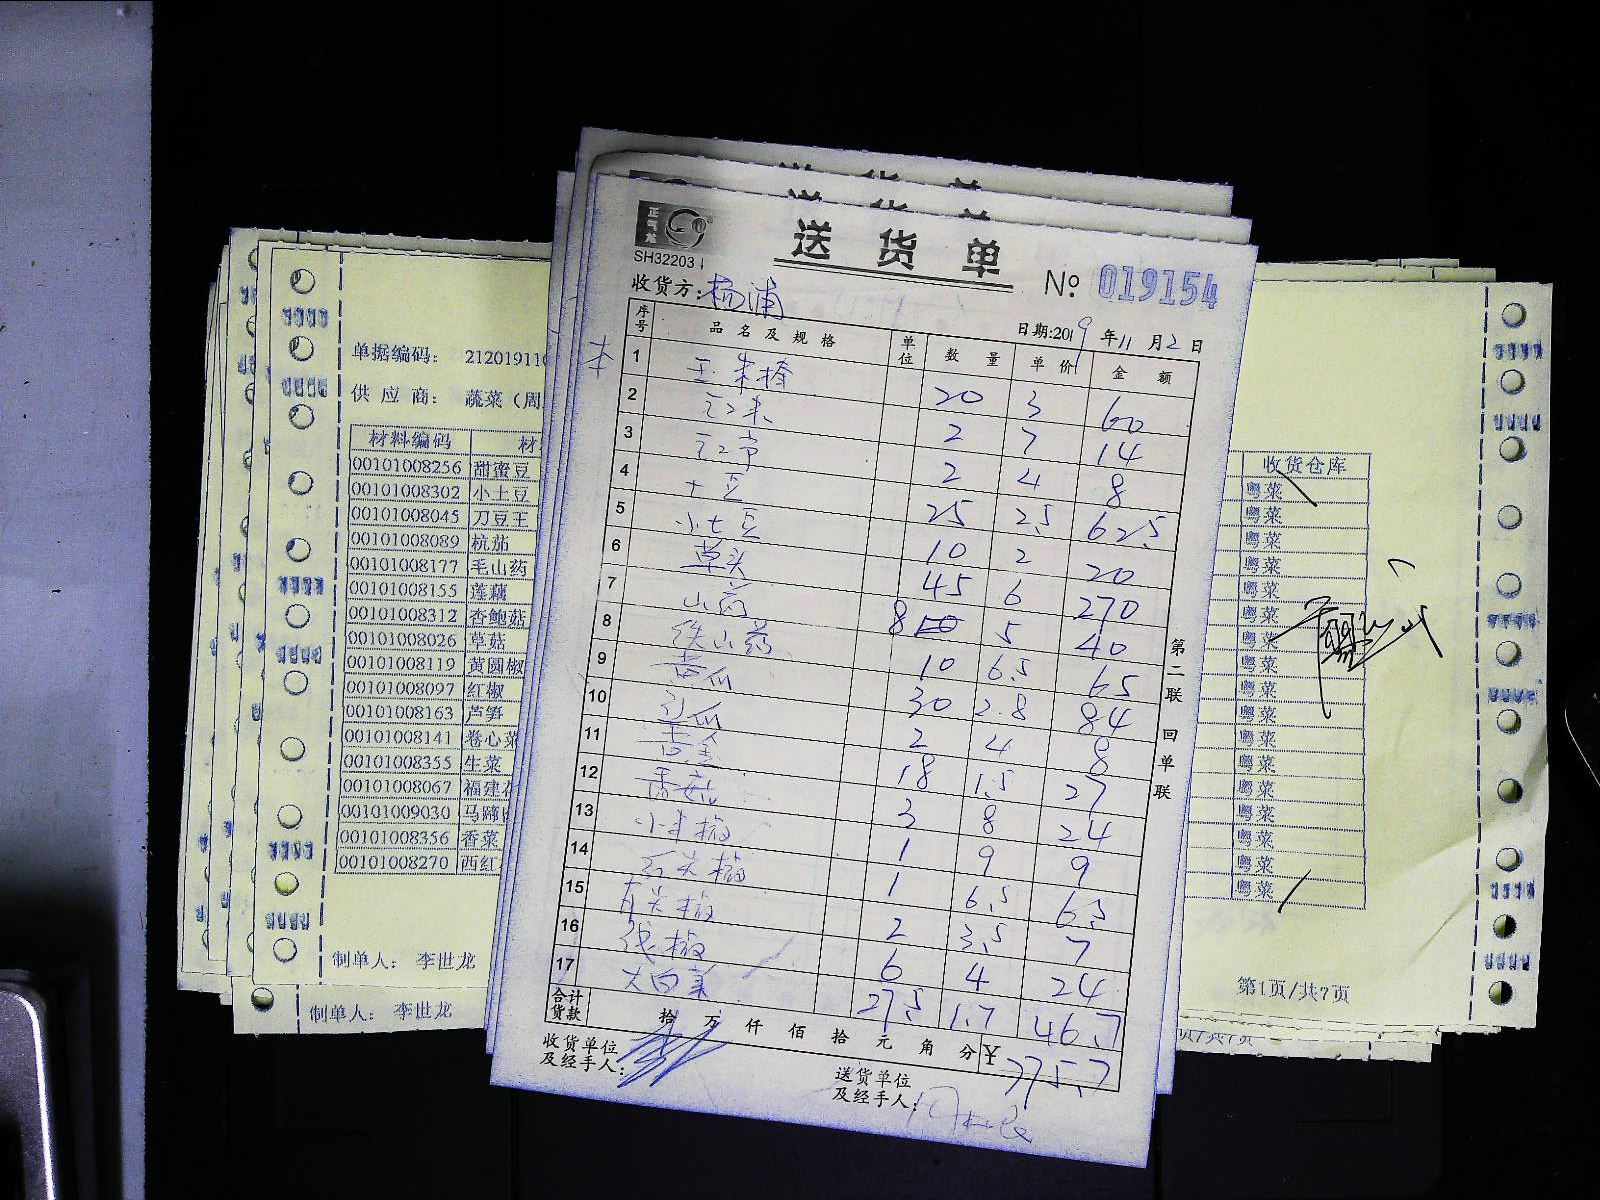 送货单
送货单
送货单
正气龙
SH32203
№ 019154
收货方: 杨浦
日期:2019年11月2日
本
序号 品名及规格 单位 数量 单价 金额
1 玉米棒 20 3 60
2 2 7 14
3 2 4 8
4 土豆 25 2.5 62.5
5 小土豆 10 2 20
6 草头 45 6 270
7 山药 8 5 40
8 铁山药 10 6.5 65
9 黄瓜 30 2.8 84
10 2 4 8
11 18 1.5 27
12 香菇 3 8 24
13 小米椒 1 9 9
14 1 6.5 6.5
15 2 3.5 7
16 线椒 6 4 24
17 大白菜 27.5 1.7 46.7
合计货款 拾 万 仟 佰 拾 元 角 分 ¥ 775.7
收货单位及经手人:
送货单位及经手人:
第二联 回单联
单据编码: 212019110
供应商: 蔬菜(周
材料编码 材
00101008256 甜蜜豆
00101008302 小土豆
00101008045 刀豆王
00101008089 杭茄
00101008177 毛山药
00101008155 莲藕
00101008312 杏鲍菇
00101008026 草菇
00101008119 黄圆椒
00101008097 红椒
00101008163 芦笋
00101008141 卷心菜
00101008355 生菜
00101008067 福建花
00101009030 马蹄
00101008356 香菜
00101008270 西红
制单人: 李世龙
制单人: 李世龙
收货仓库
粤菜
粤菜
粤菜
粤菜
粤菜
粤菜
粤菜
粤菜
粤菜
粤菜
粤菜
粤菜
粤菜
粤菜
粤菜
粤菜
粤菜
第1页/共7页
页/共7页